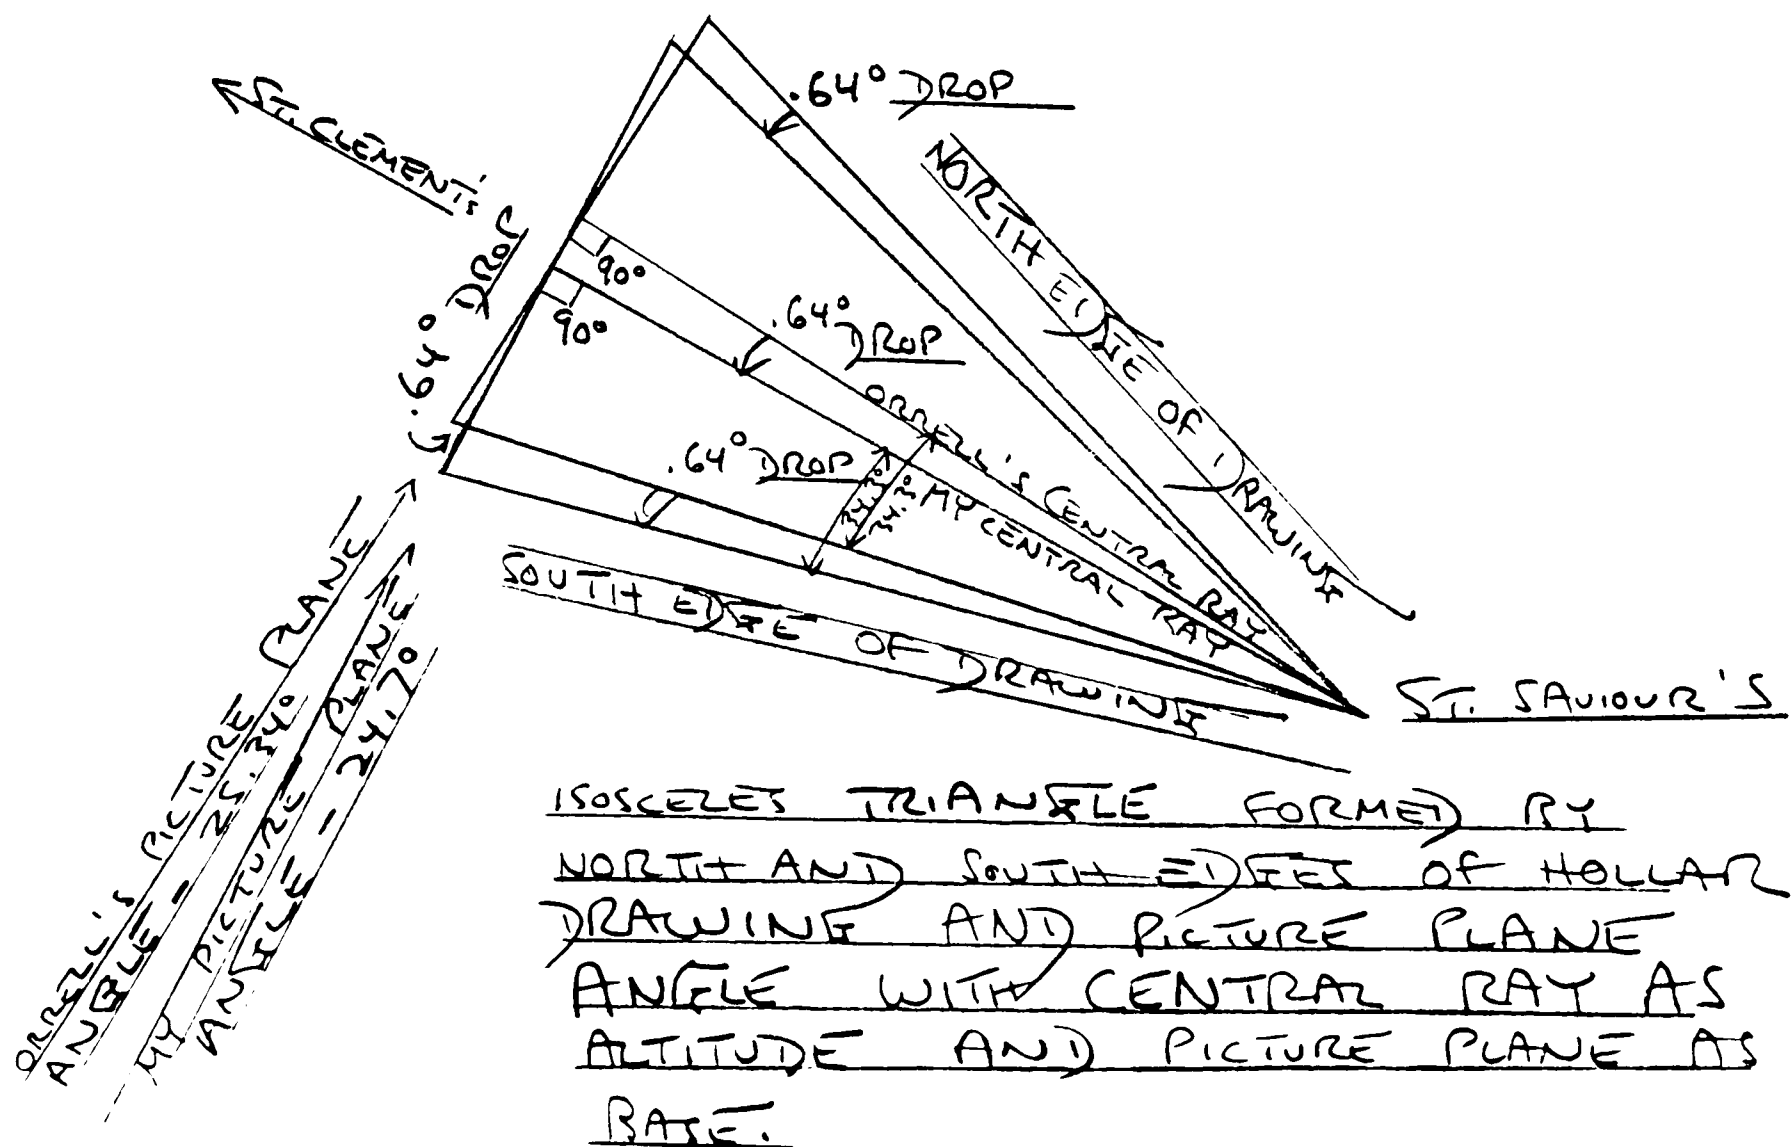 .64° DROP
ST. CLEMENT'S
NORTH EDGE OF DRAWING
.64° DROP
90°
90°
.64°
DROP
ORRELL'S CENTRAL RAY
.64° DROP
34.3°
34.3°
MY CENTRAL RAY
SOUTH EDGE OF DRAWING
ST. SAVIOUR'S
ORRELL'S PICTURE PLANE
ANGLE - 25.34°
MY PICTURE PLANE
ANGLE - 24.7°
ISOSCELES TRIANGLE FORMED BY
NORTH AND SOUTH EDGES OF HOLLAR
DRAWING AND PICTURE PLANE
ANGLE WITH CENTRAL RAY AS
ALTITUDE AND PICTURE PLANE AS
BASE.